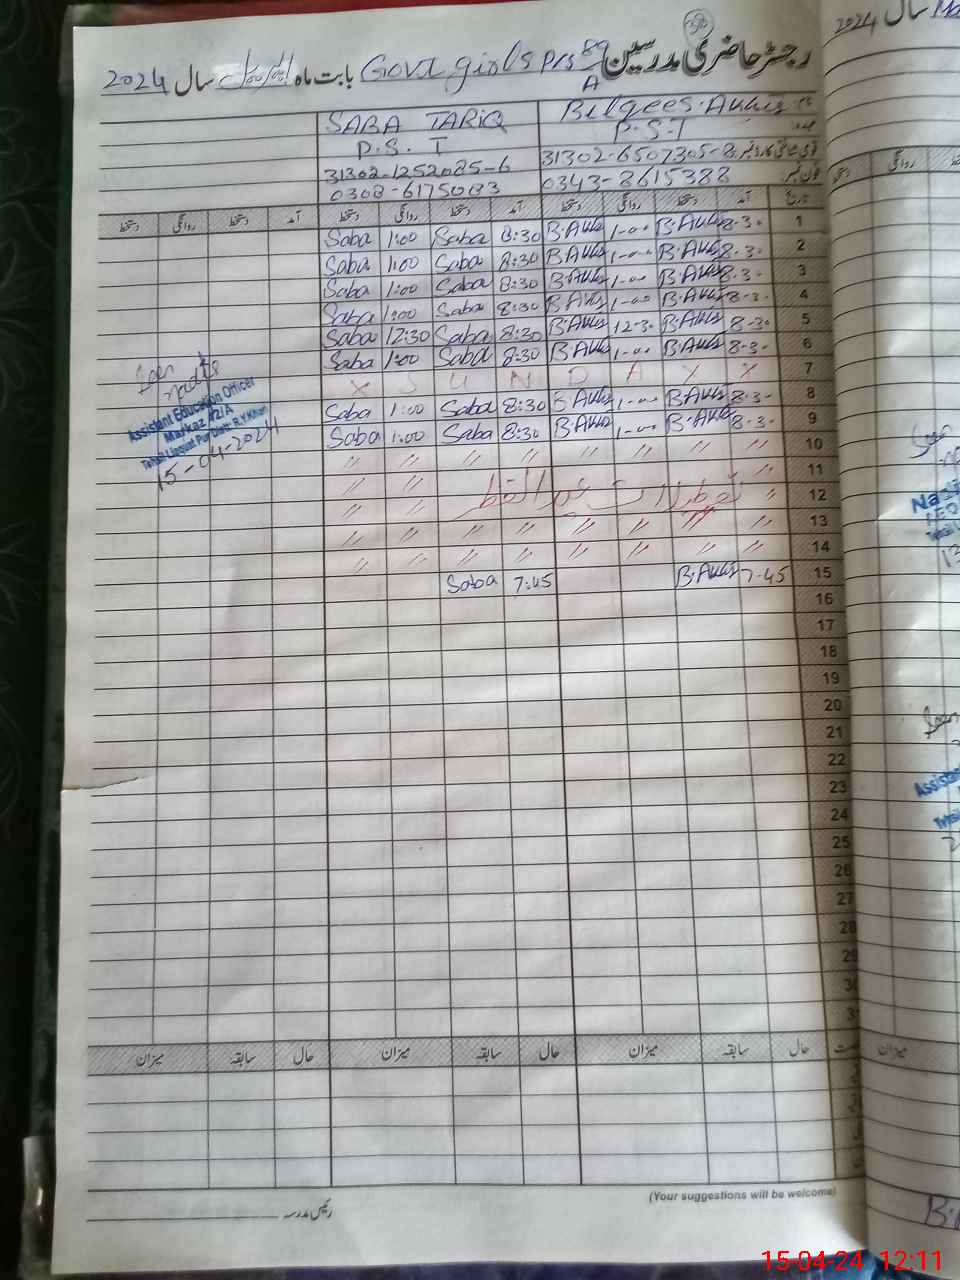 رجسٹر حاضری مدرسین Govt girls Prs 89/A بابت ماہ اپریل سال 2024
Bilqees. Akhtar SABA TARIQ
P.S.T P.S.T
قومی شناختی کارڈ نمبر 31302-6507305-8 31302-1252085-6
فون نمبر 0343-8615388 0308-6175083
تاریخ آمد دستخط روانگی دستخط آمد دستخط روانگی دستخط آمد دستخط روانگی دستخط
1 8-30 B.Akhtr 1-00 B.Akhtr 8:30 Saba 1:00 Saba
2 8-30 B.Akhtr 1-00 B.Akhtr 8:30 Saba 1:00 Saba
3 8-30 B.Akhtr 1-00 B.Akhtr 8:30 Saba 1:00 Saba
4 8-30 B.Akhtr 1-00 B.Akhtr 8:30 Saba 1:00 Saba
5 8-30 B.Akhtr 12-30 B.Akhtr 8:30 Saba 12:30 Saba
6 8-30 B.Akhtr 1-00 B.Akhtr 8:30 Saba 1:00 Saba
7 X S U N D A Y X
8 8-30 B.Akhtr 1-00 B.Akhtr 8:30 Saba 1:00 Saba
9 8-30 B.Akhtr 1-00 B.Akhtr 8:30 Saba 1:00 Saba
10 // // // // // // // //
11
12 تعطیلات عید الفطر
13 // // // // // // // //
14 // // // // // // // //
15 7-45 B.Akhtr 7:45 Saba
16
17
18
19
20
21
22
23
24
25
26
27
28
29
30
3
حال سابقہ میزان حال سابقہ میزان حال سابقہ میزان
Seen
Assistant Education Officer
Markaz 42/A
Tehsil Liaquat Pur Distt: R.Y.Khan
15-04-2024
(Your suggestions will be welcome)
رئیس مدرسہ
2024 سال
روانگی
میزان
Seen
Assistant
15-04-24 12:11